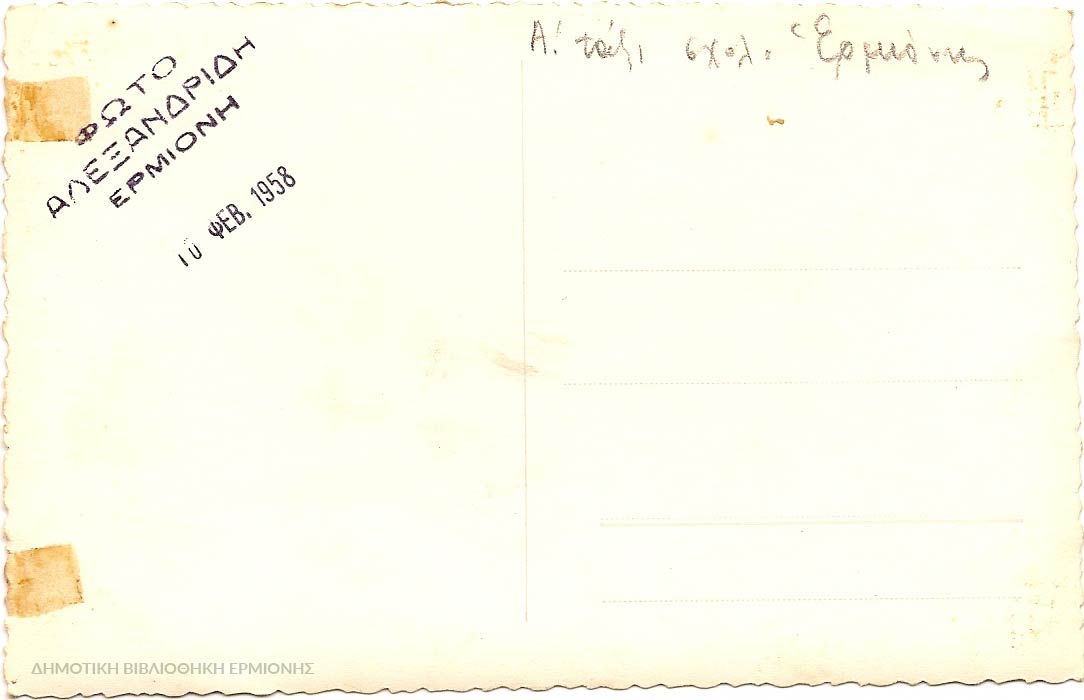 ΦΩΤΟ
ΑΛΕΞΑΝΔΡΙΔΗ
ΕΡΜΙΟΝΗ
10 ΦΕΒ. 1958
Α.' τάξι σχολ. Ἑρμιόνης
ΔΗΜΟΤΙΚΗ ΒΙΒΛΙΟΘΗΚΗ ΕΡΜΙΟΝΗΣ